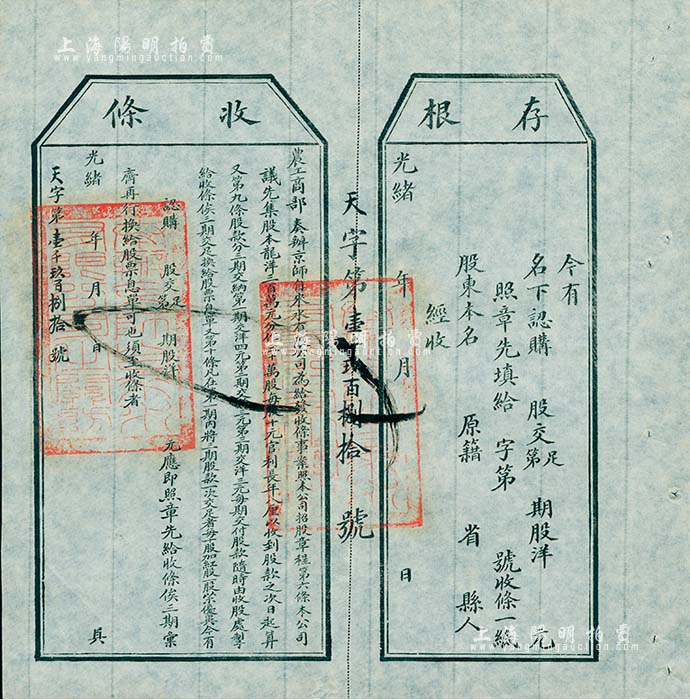 上海陽明拍賣
www.yangmingauction.com
存根
今有
名下認購 股交足第 期股洋 元
照章先填給 字第 號收條一紙
股東本名 原籍 省 縣人
經收
光緒 年 月 日
天字第壹 玖百捌拾 號
收條
農工商部奏辦京師自來水有 司為給發收條事案照本公司招股章程第六條本公司
議先集股本龍洋三百萬元分作三十萬股每股十元官利長年八厘以收到股款之次日起算
又第九條股款分三期交納第一期交洋四元第二期交洋三元第三期交洋三元每期交付股款隨時由收股處掣
給收條俟三期交足換給股票息單又第十條凡在第一期內將三期股款一次交足者每 股加紅股一股 今有
認購 股交足第 期股洋 元應即照章先給收條俟三期彙
齊再行換給股票息單可也須至收條者
光緒 年 月 日 具
天字第壹千玖百捌拾號
上海陽明拍賣
www.yangmingauction.com